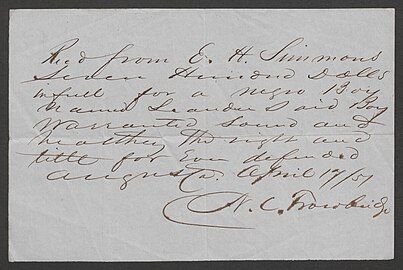 Recd from E. H. Simmons
Seven Hundred Dolls
in full for a negro Boy
named Leander Said Boy
Warranted Sound and
healthy The right and
title for Ever defended
Augusta. April 17/51
N. C. Trowbridge